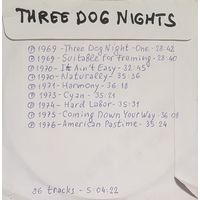 THREE DOG NIGHTS
℗ 1969 - Three Dog Night - One - 28:42
℗ 1969 - Suitable For Framing - 28:40
℗ 1970 - It Ain't Easy - 32:45
℗ 1970 - Naturally - 35:36
℗ 1971 - Harmony - 36:18
℗ 1973 - Cyan - 35:21
℗ 1974 - Hard Labor - 35:31
℗ 1975 - Coming Down Your Way - 36:08
℗ 1976 - American Pastime - 35:24
86 tracks - 5:04:22